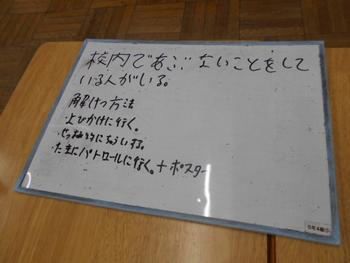 校内であぶないことをして
いる人がいる。
解けつ方法
よびかけに行く。
ちゅういする。
・たまにパトロールに行く。+ポスター